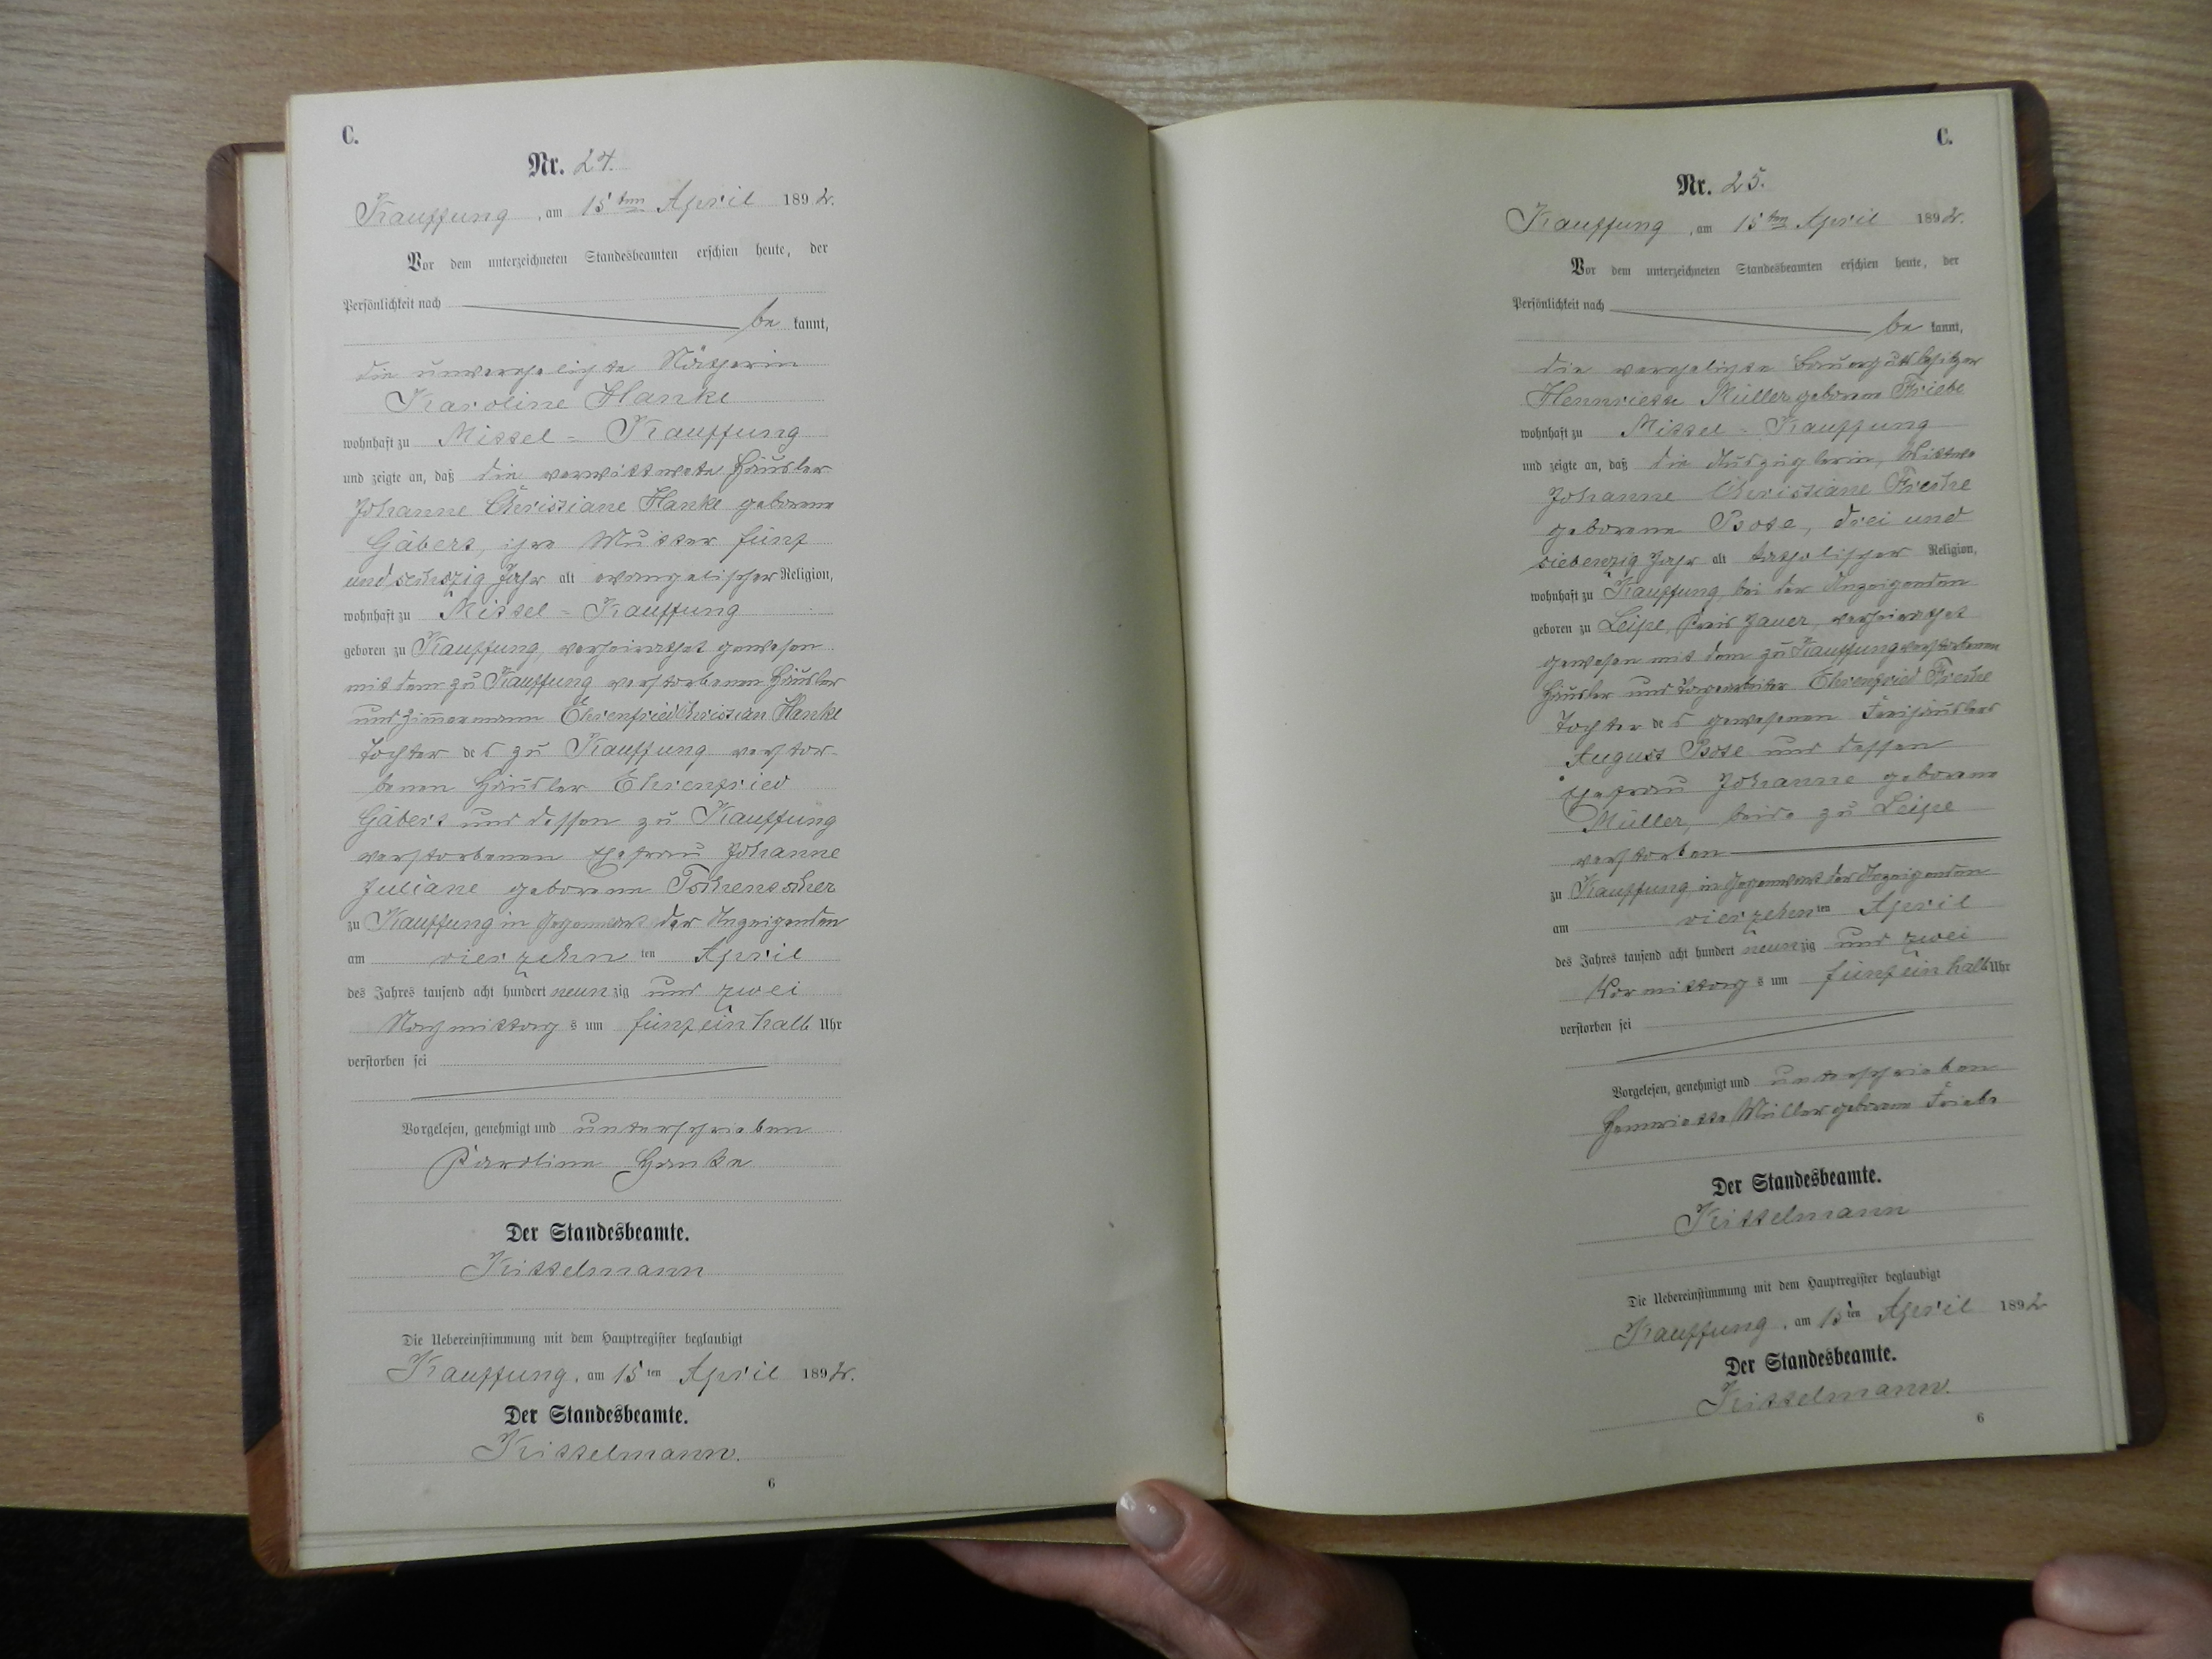 C.
Nr. 24.
Kauffung, am 15ten April 1892.
Vor dem unterzeichneten Standesbeamten erschien heute, der
Persönlichkeit nach
be kannt,
die unverehelichte Näherin
Karoline Hanke
wohnhaft zu Mittel-Kauffung
und zeigte an, daß die verwittwete Häusler
Johanne Christiane Hanke geborene
Gäbert, ihre Mutter fünf
und sechszig Jahr alt evangelischer Religion,
wohnhaft zu Mittel-Kauffung
geboren zu Kauffung, verheirathet gewesen
mit dem zu Kauffung verstorbenen Häusler
und Zimmermann Ehrenfried Christian Hanke
Tochter des zu Kauffung verstor-
benen Häusler Ehrenfried
Gäbert und dessen zu Kauffung
verstorbenen Ehefrau Johanne
Juliane geborene Tschenscher
zu Kauffung in Gegenwart der Anzeigenden
am vierzehn ten April
des Jahres tausend acht hundert neunzig und zwei
Nachmittag s um fünfeinhalb Uhr
verstorben sei
Vorgelesen, genehmigt und unterschrieben
Karoline Hanke
Der Standesbeamte.
Kittelmann
Die Uebereinstimmung mit dem Hauptregister beglaubigt
Kauffung, am 15ten April 1892.
Der Standesbeamte.
Kittelmann.
6
C.
Nr. 25.
Kauffung, am 15ten April 1892.
Vor dem unterzeichneten Standesbeamten erschien heute, der
Persönlichkeit nach
be kannt,
die verehelichte Bauergutsbesitzer
Hennriette Müller geborene Friebe
wohnhaft zu Mittel-Kauffung
und zeigte an, daß die Auszüglerin, Wittwe
Johanne Christiane
geborene Bose, drei und
siebenzig Jahr alt katholischer Religion,
wohnhaft zu Kauffung, bei der Anzeigenden
geboren zu Leipe, Kreis Jauer, verheirathet
gewesen mit dem zu Kauffung verstorbenen
Häusler und Tagearbeiter Ehrenfried
Tochter des gewesenen Freihäusler
August Bose und dessen
Ehefrau Johanne geborene
Müller, beide zu Leipe
verstorben
zu Kauffung in Gegenwart der Anzeigenden
am vierzehn ten April
des Jahres tausend acht hundert neunzig und zwei
Vormittag s um fünfeinhalb Uhr
verstorben sei
Vorgelesen, genehmigt und unterschrieben
Hennriette Müller geborene Friebe
Der Standesbeamte.
Kittelmann
Die Uebereinstimmung mit dem Hauptregister beglaubigt
Kauffung, am 15ten April 1892
Der Standesbeamte.
Kittelmann.
6